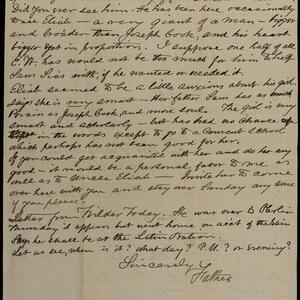 Did you ever see him. He has been here occasionally
to see Eliah — a very giant of a man — bigger
and broader than Joseph Cook, and his heart
bigger yet in proportion. I suppose one half of all
W. has would not be too much for him to help
Sam his with, if he wanted or needed it.
Eliah seemed to be a little anxious about his girl
says she is very smart. Her father Sam has as much
brain as Joseph Cook and most souls. The girl is very
smart and scholarly but has had no chance
in the woods except to go to a Convent School
which perhaps has not been good for her.
If you could get acquainted with her and do her any
good — it would be a personal favor to me as
well as to Uncle Eliah. Invite her to come
over here with you and stay over Sunday any time
if you please.
Letter from Wilder today. He was over to
Thursday it appears but went home on acct of the rain
Says he shall be at the Latin
Let us see, when is it? what day? P.M.? or Evening?
Sincerely
Father